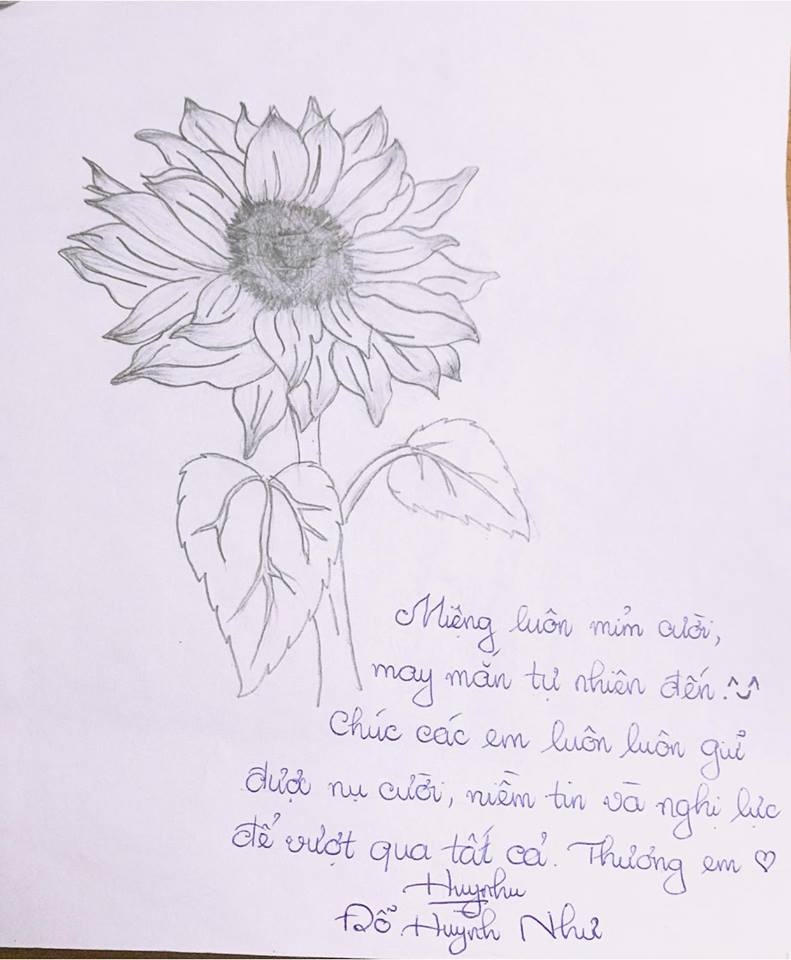 Miệng luôn mỉm cười,
may mắn tự nhiên đến. ^‿^
Chúc các em luôn luôn giữ
được nụ cười, niềm tin và nghị lực
để vượt qua tất cả. Thương em ♡
Huynhu
Đỗ Huỳnh Như